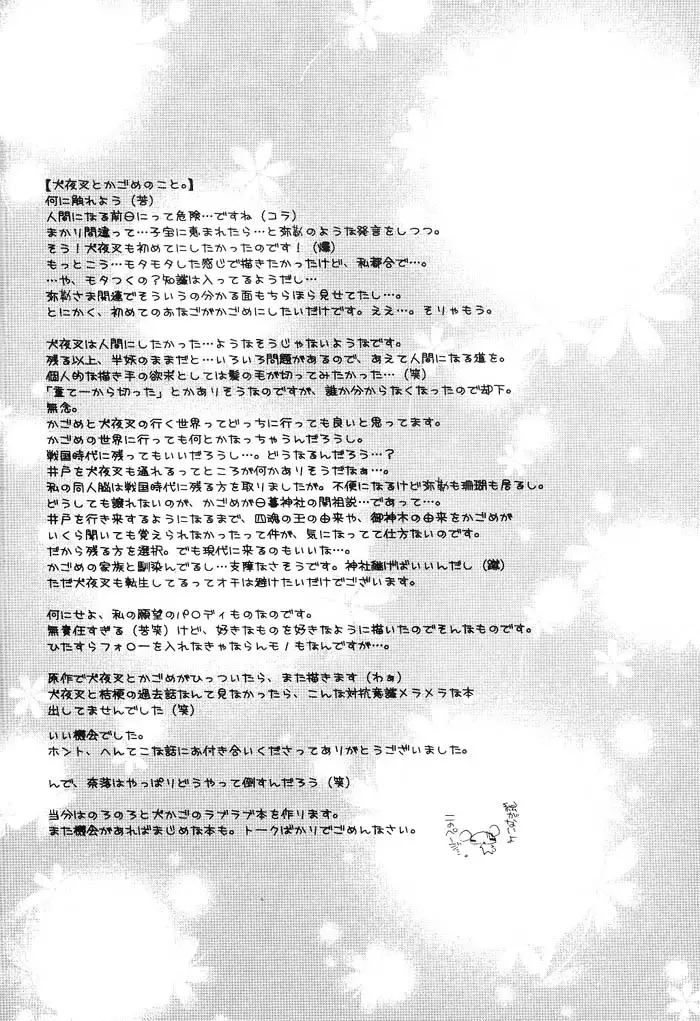 【犬夜叉とかごめのこと。】
何に触れよう（苦）
人間になる前日にって危険…ですね（コラ）
まかり間違って…子宝に恵まれたら…と弥勒のような発言をしつつ。
そう！犬夜叉も初めてにしたかったのです！（爆）
もっとこう…モタモタした感じで描きたかったけど、私都合で…。
…や、モタつくの？知識は入ってるようだし…
弥勒さま関連でそういうの分かる面もちらほら見せてたし…。
とにかく、初めてのおなごがかごめにしたいだけです。ええ…。そりゃもう。
犬夜叉は人間にしたかった…ようなそうじゃないようなです。
残る以上、半妖のままだと…いろいろ問題があるので、あえて人間になる道を。
個人的な描き手の欲求としては髪の毛が切ってみたかった…（笑）
「重て一から切った」とかありそうなのですが、誰か分からなくなったので却下。
無念。
かごめと犬夜叉の行く世界ってどっちに行っても良いと思ってます。
かごめの世界に行っても何とかなっちゃうんだろうし。
戦国時代に残ってもいいだろうし…。どうなるんだろう…？
井戸を犬夜叉も通れるってところが何かありそうだなぁ…。
私の同人脳は戦国時代に残る方を取りましたが。不便になるけど弥勒も珊瑚も居るし。
どうしても譲れないのが、かごめが日暮神社の開祖説…であって…。
井戸を行き来するようになるまで、四魂の玉の由来や、御神木の由来をかごめが
いくら聞いても覚えられなかったって件が、気になってて仕方ないのです。
だから残る方を選択。でも現代に来るのもいいな…。
かごめの家族と馴染んでるし…支障なさそうです。神社継げばいいんだし（蹴）
ただ犬夜叉も転生してるってオチは避けたいだけでございます。
何にせよ、私の願望のパロディものなのです。
無責任すぎる（苦笑）けど、好きなものを好きなように描いたのでそんなものです。
ひたすらフォローを入れなきゃならんモノもなんですが…。
原作で犬夜叉とかごめがひっついたら、また描きます（わぁ）
犬夜叉と桔梗の過去話なんて見なかったら、こんな対抗意識メラメラな本
出してませんでした（笑）
いい機会でした。
ホント、へんてこな話にお付き合いくださってありがとうございました。
んで、奈落はやっぱりどうやって倒すんだろう（笑）
当分はのろのろと犬かごのラブラブ本を作ります。
また機会があればまじめな本も。トークばかりでごめんなさい。